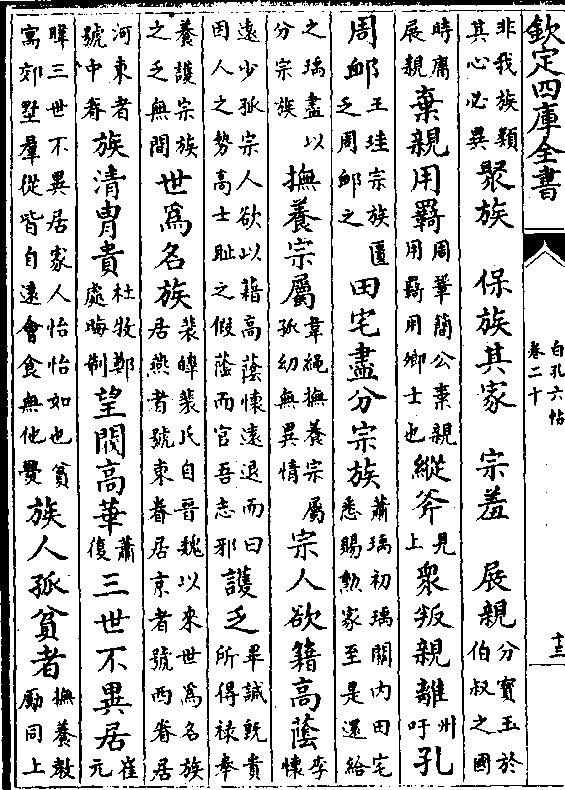 欽定四庫全書
白孔六帖
卷二十
十三
非我族類
其心必異
聚族　保族其家　宗羞　展親
分寳玉於
伯叔之國
時庸
展親
棄親用羇
周鞏簡公棄親
用羇用鄉士也
縱斧
見
上
衆叛親離
州
吁
孔
周䘏
王珪宗族匱
乏周䘏之
田宅盡分宗族
蕭瑀初瑀關内田宅
悉賜勲家至是還給
之瑀盡以
分宗族
撫養宗屬
韋繩撫養宗屬
孤幼無異情
宗人欲籍高蔭
李
懷
遠少孤宗人欲以籍高蔭懷遠退而曰
因人之勢高士恥之假蔭而官吾志邪
護乏
畢諴既貴
所得禄奉
養護宗族
之乏無間
世爲名族
裴皥裴氏自晉魏以來世爲名族
居燕者號東眷居京者號西眷居
河東者
號中眷
族清胄貴
杜牧鄭
處晦制
望閥高華
蕭
復
三世不異居
崔
元
暐三世不異居家人怡怡如也貧
寓郊墅羣從皆自遠會食無他㸑
族人孤貧者
撫養教
勵同上